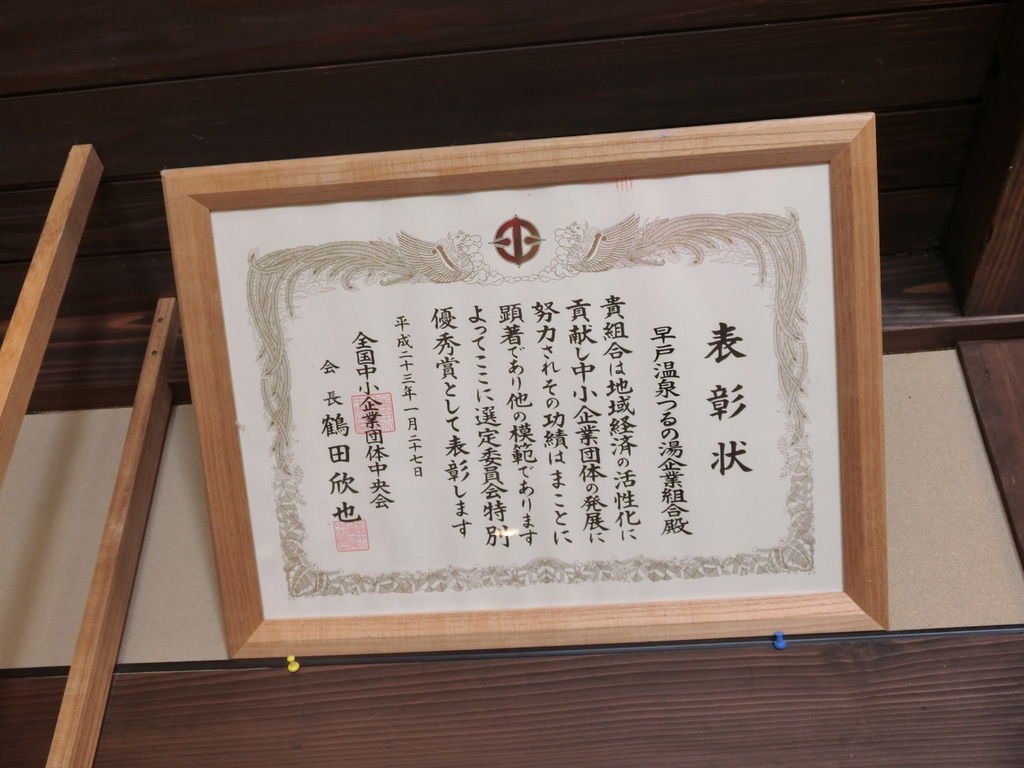 表彰状
早戸温泉つるの湯企業組合殿
貴組合は地域経済の活性化に
貢献し中小企業団体の発展に
努力されその功績はまことに
顕著であり他の模範であります
よってここに選定委員会特別
優秀賞として表彰します
平成二十三年一月二十七日
全国中小企業団体中央会
会長 鶴田欣也